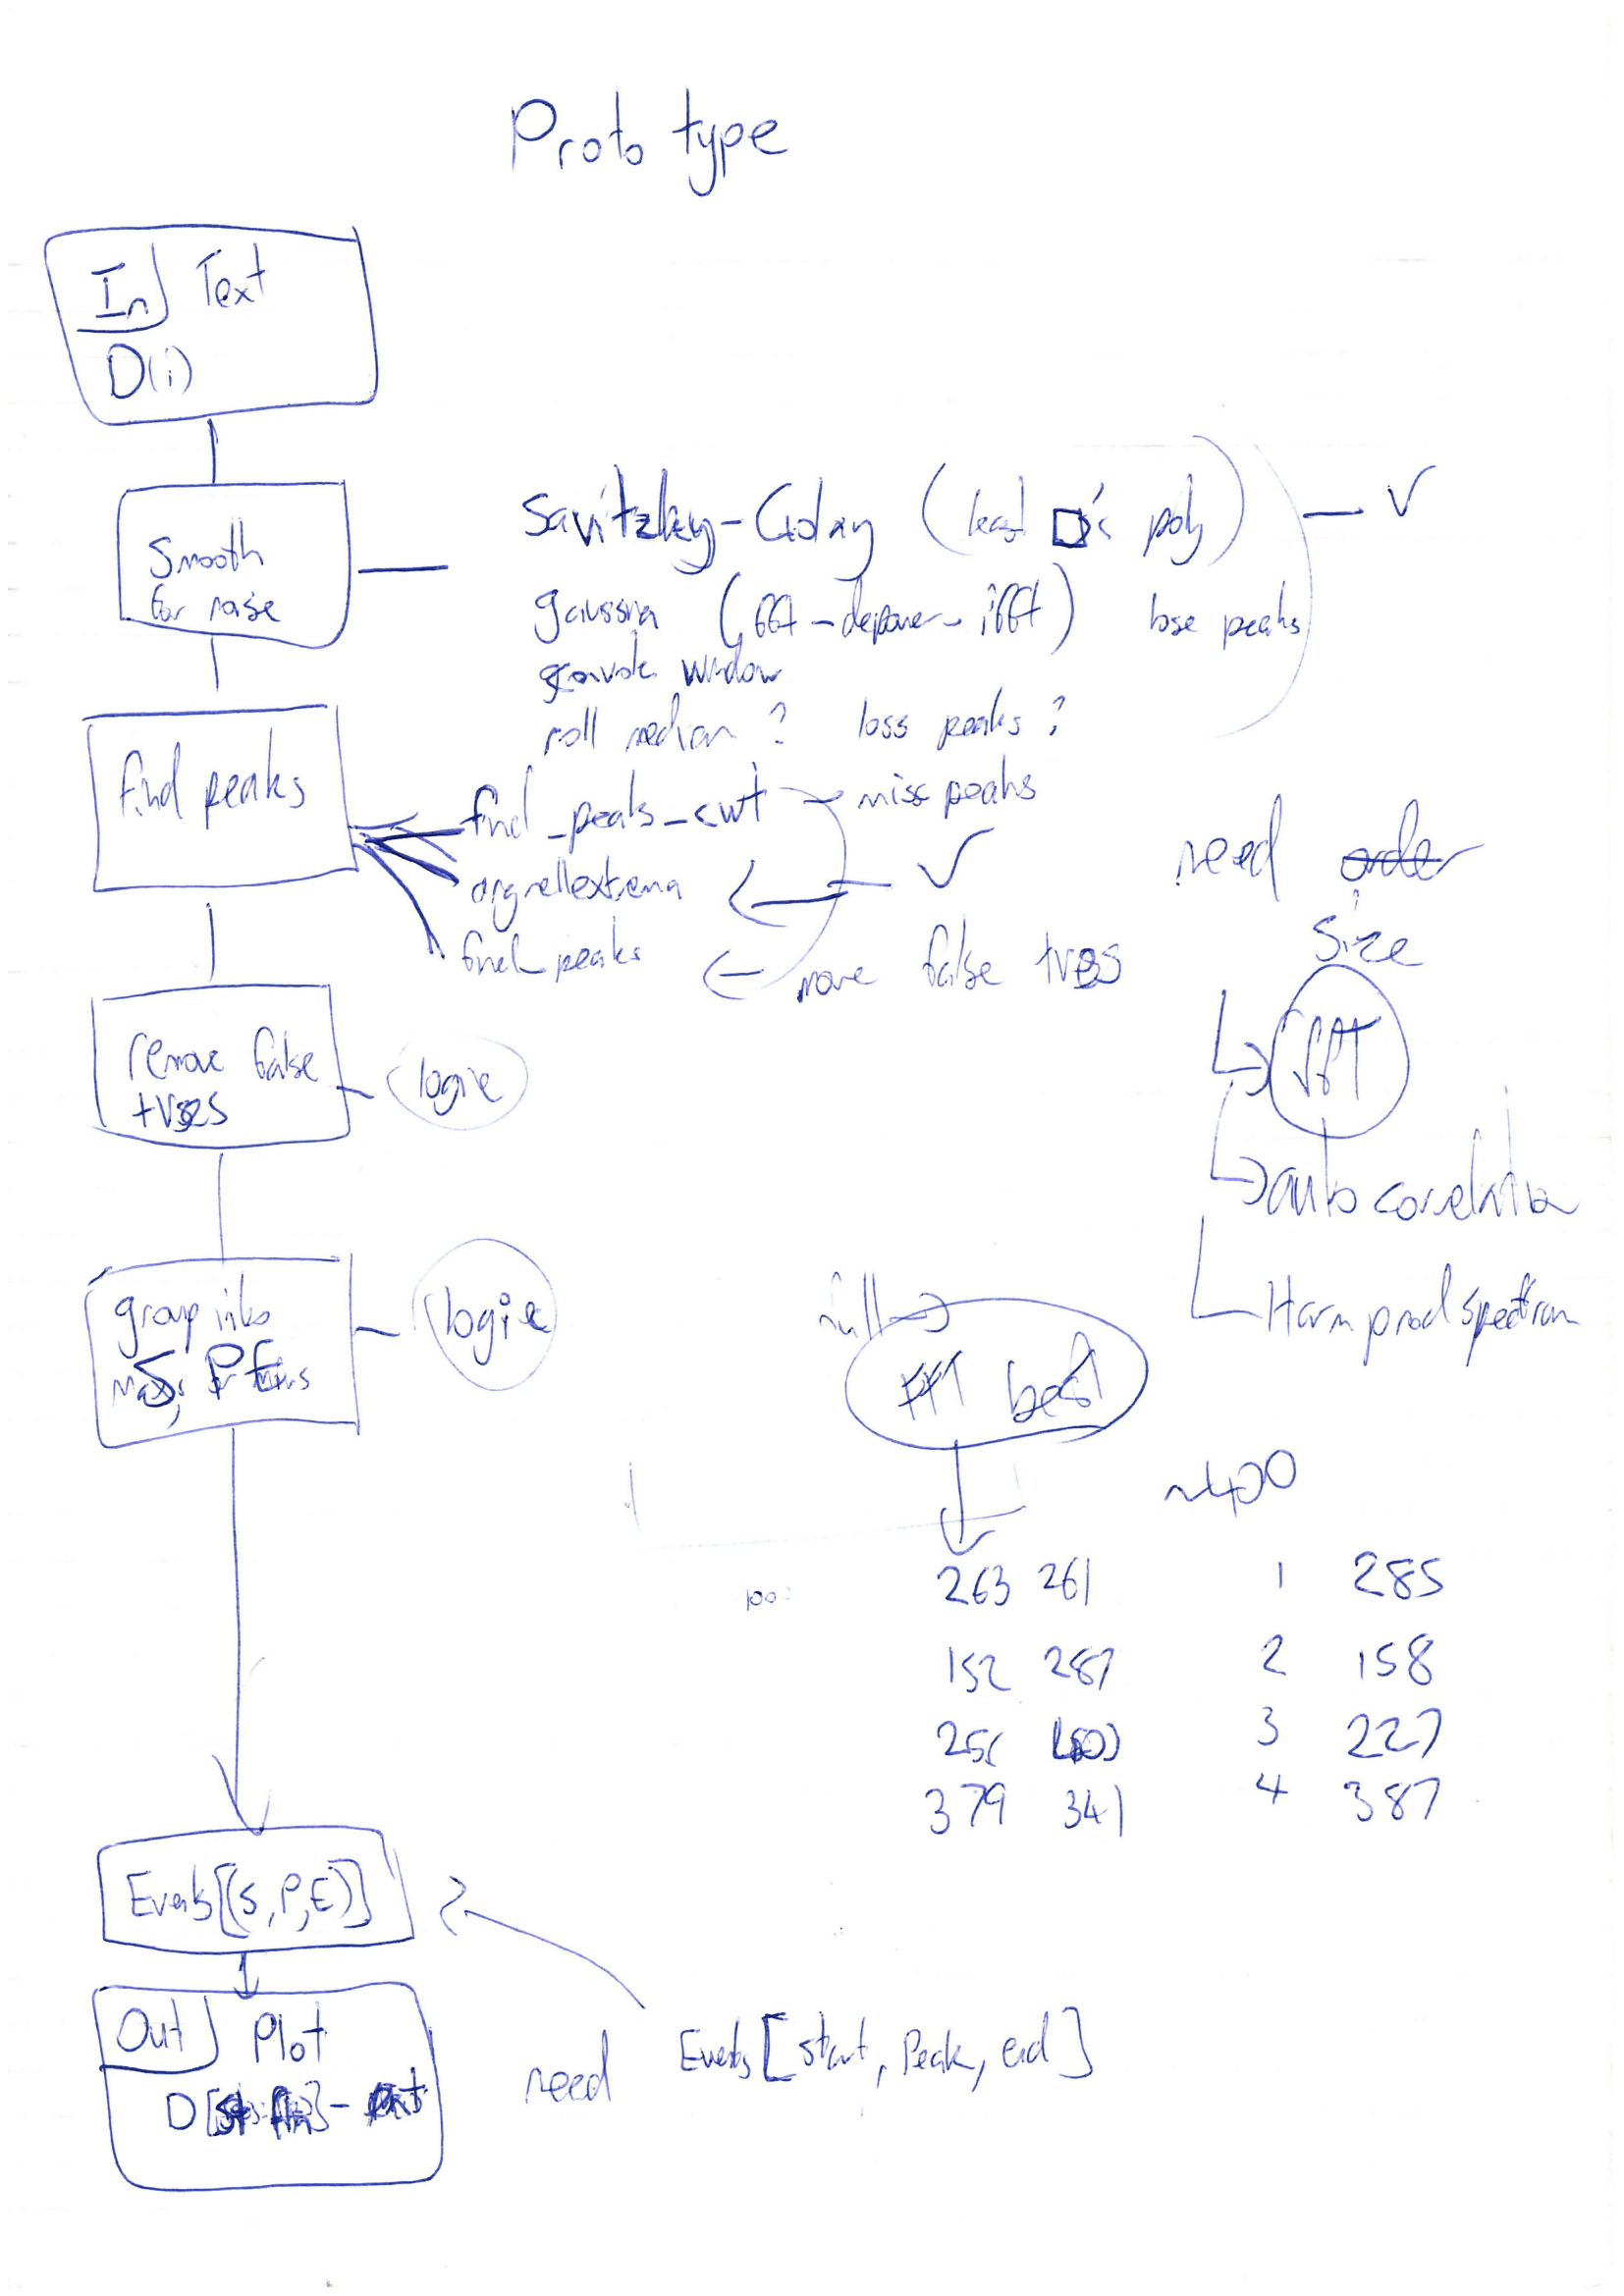 Proto type
In Text
D(i)
Smooth
for noise
Savitzky-Golay (least □'s poly) — ✓
gaussian (fft - depower - ifft) lose peaks
convolve window
roll median ? loss peaks ?
find peaks
find_peaks_cwt → miss peaks
argrelextrema ← ✓
find_peaks ← more false +ves
need order
size
remove false
+ves
logic
FFT
auto correlation
Harm prod spectrum
group into
S, P E
logic
null →
FFT best
~400
263 261 1 285
100
152 287 2 158
3 227
379 341 4 387
Events[(S,P,E)]
Out Plot
D[
need Events[start, Peak, end]